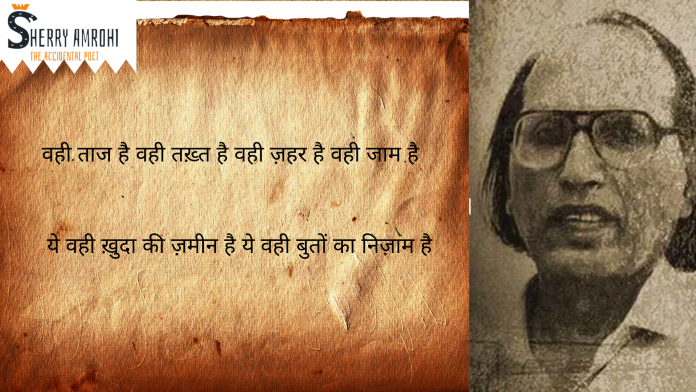 SHERRY AMROHI
THE ACCIDENTAL POET
वही ताज है वही तख़्त है वही ज़हर है वही जाम है
ये वही ख़ुदा की ज़मीन है ये वही बुतों का निज़ाम है